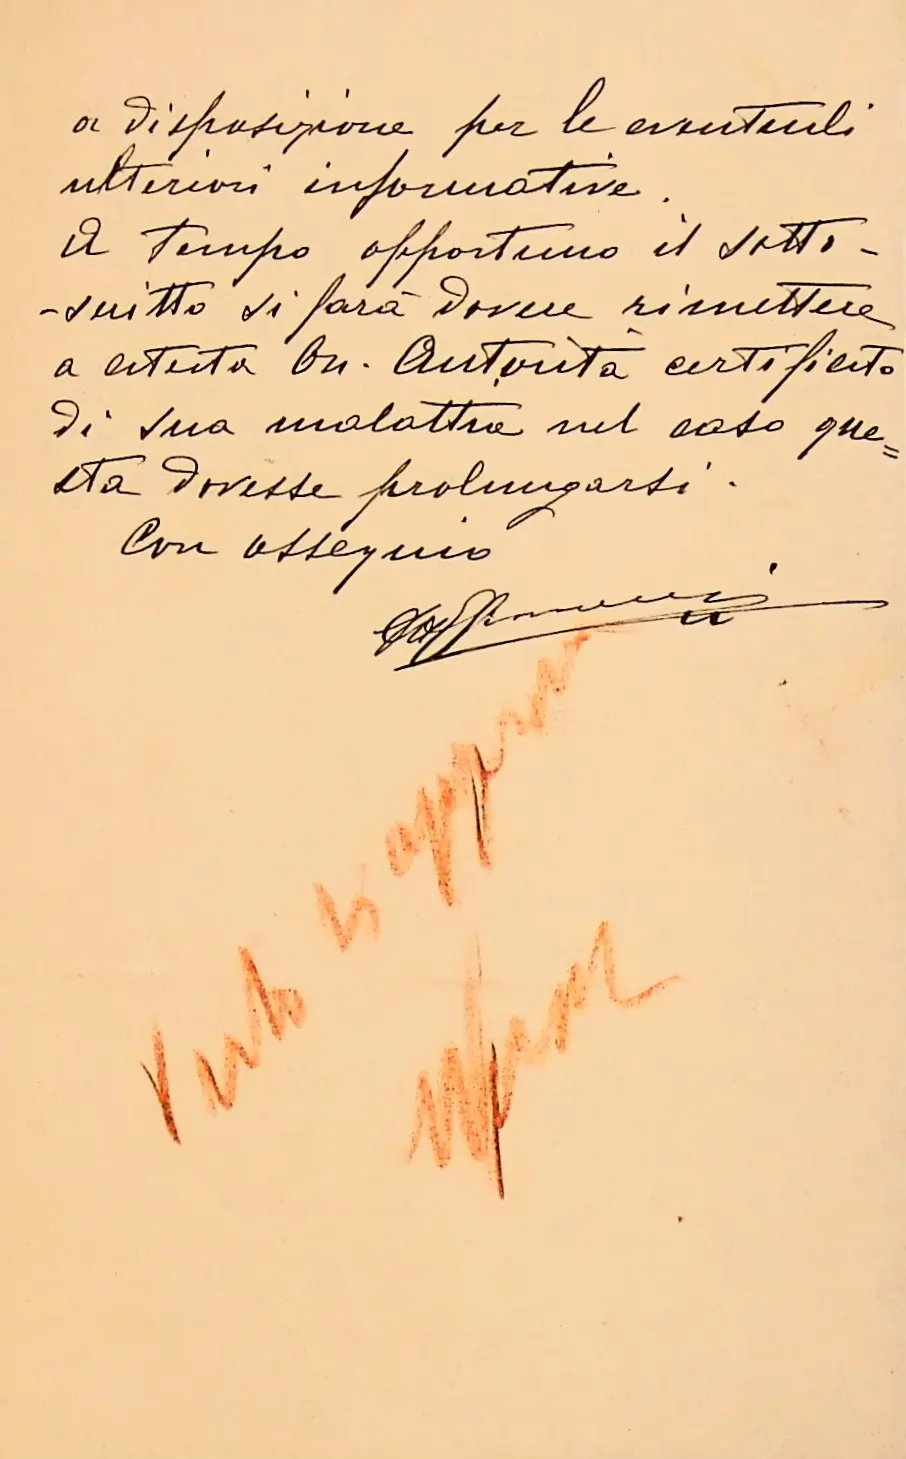 a disposizione per le eventuali
ulteriori informative.
A tempo opportuno il sotto-
-scritto si farà dovere rimettere
a cotesta On. Autorità certificato
di sua malattia nel caso que=
sta dovesse prolungarsi.
Con ossequio
Visto si approva